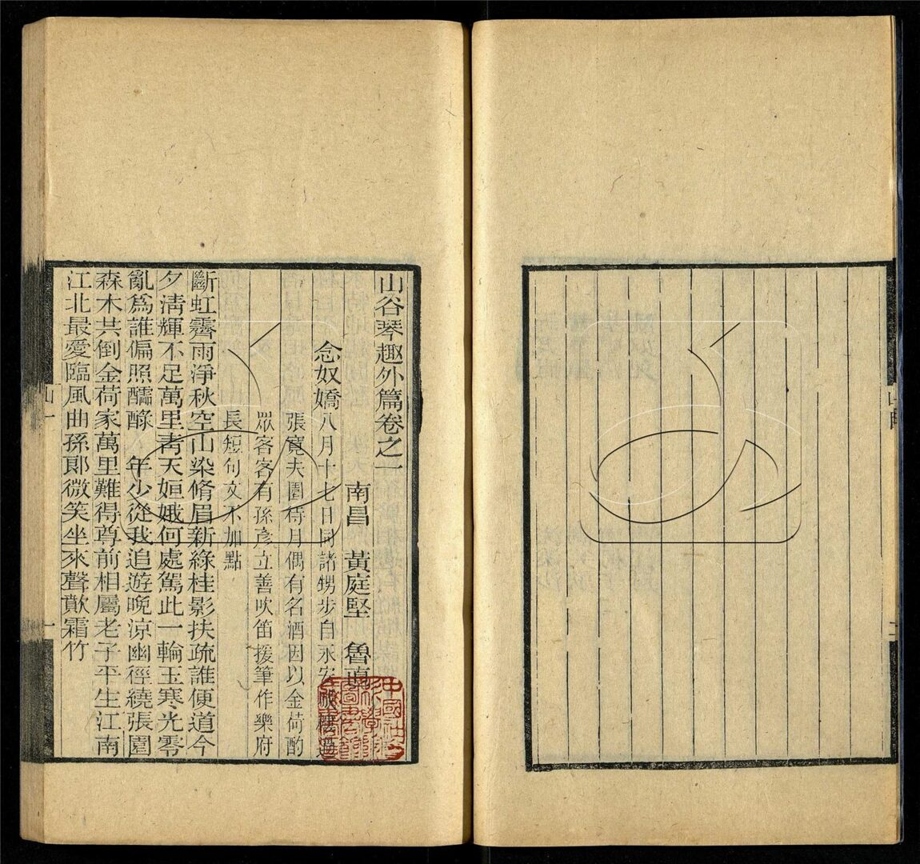 山谷琴趣外篇卷之一
南昌 黃庭堅 魯直
念奴嬌八月十七日同諸甥步自永安城樓過
張寬夫園待月偶有名酒因以金荷酌
眾客客有孫彥立善吹笛援筆作樂府
長短句文不加點
斷虹霽雨淨秋空山染脩眉新綠桂影扶疏誰便道今
夕淸輝不足萬里靑天姮娥何處駕此一輪玉寒光零
亂爲誰偏照醽醁 年少從我追遊晚涼幽徑繞張園
森木共倒金荷家萬里難得尊前相屬老子平生江南
江北最愛臨風曲孫郞微笑坐來聲歕霜竹
山一
一